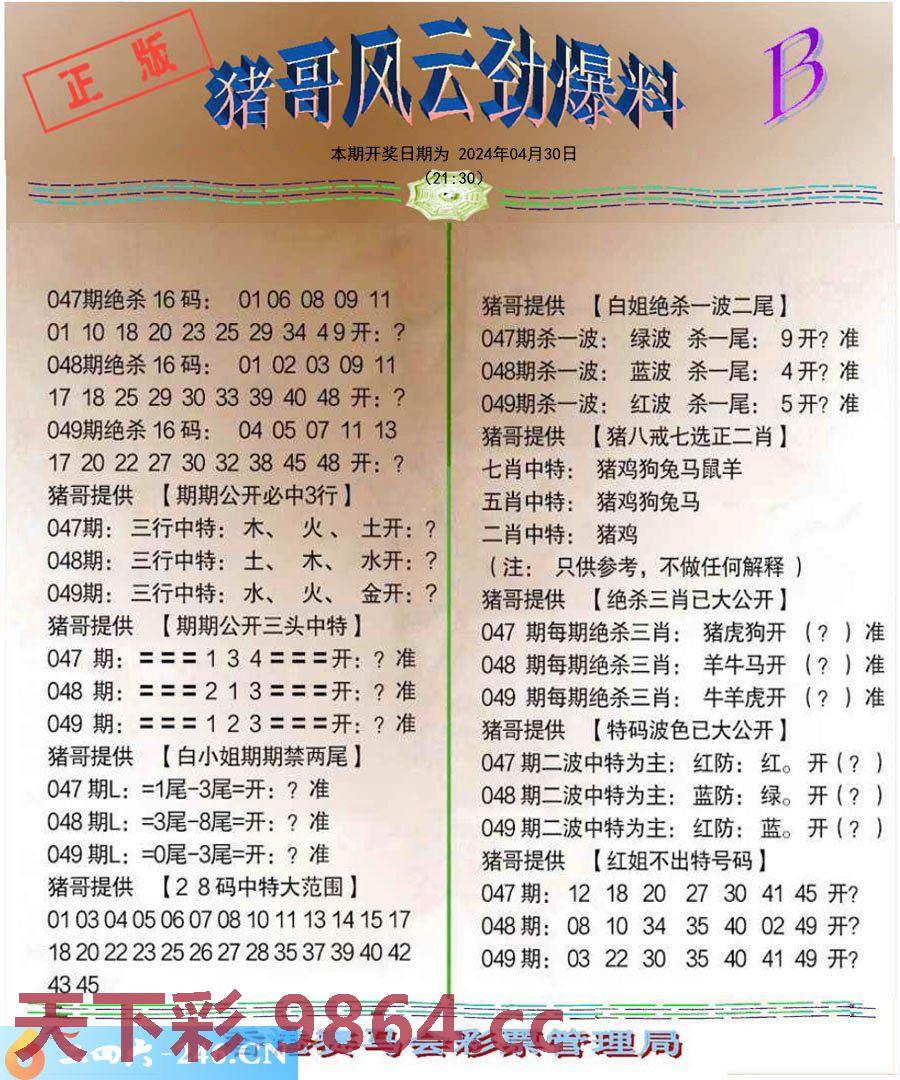 正版
猪哥风云劲爆料
B
本期开奖日期为 2024年04月30日
(21:30)
047期绝杀16码： 01 06 08 09 11
01 10 18 20 23 25 29 34 49开：?
048期绝杀16码： 01 02 03 09 11
17 18 25 29 30 33 39 40 48 开：?
049期绝杀16码： 04 05 07 11 13
17 20 22 27 30 32 38 45 48 开：?
猪哥提供 【期期公开必中3行】
047期：三行中特：木、 火、 土开：?
048期：三行中特：土、 木、 水开：?
049期：三行中特：水、 火、 金开：?
猪哥提供 【期期公开三头中特】
047 期：===134===开：? 准
048 期：===213===开：? 准
049 期：===123===开：? 准
猪哥提供 【白小姐期期禁两尾】
047期L：=1尾-3尾=开：? 准
048期L：=3尾-8尾=开：? 准
049期L：=0尾-3尾=开：? 准
猪哥提供 【28码中特大范围】
01 03 04 05 06 07 08 10 11 13 14 15 17
18 20 22 23 25 26 27 28 35 37 39 40 42
43 45
猪哥提供 【白姐绝杀一波二尾】
047期杀一波： 绿波 杀一尾： 9开? 准
048期杀一波： 蓝波 杀一尾： 4开? 准
049期杀一波： 红波 杀一尾： 5开? 准
猪哥提供 【猪八戒七选正二肖】
七肖中特： 猪鸡狗兔马鼠羊
五肖中特： 猪鸡狗兔马
二肖中特： 猪鸡
（注： 只供参考，不做任何解释 ）
猪哥提供 【绝杀三肖已大公开】
047 期每期绝杀三肖： 猪虎狗开 （? ）准
048 期每期绝杀三肖： 羊牛马开 （? ）准
049 期每期绝杀三肖： 牛羊虎开 （? ）准
猪哥提供 【特码波色已大公开】
047期二波中特为主：红防：红。开(? )
048期二波中特为主：蓝防：绿。开(? )
049期二波中特为主：红防：蓝。开(? )
猪哥提供 【红姐不出特号码】
047期： 12 18 20 27 30 41 45 开?
048期： 08 10 34 35 40 02 49 开?
049期： 03 22 30 35 40 41 49 开?
天下彩 9864.cc
二四六-246.CN
马会彩票管理局